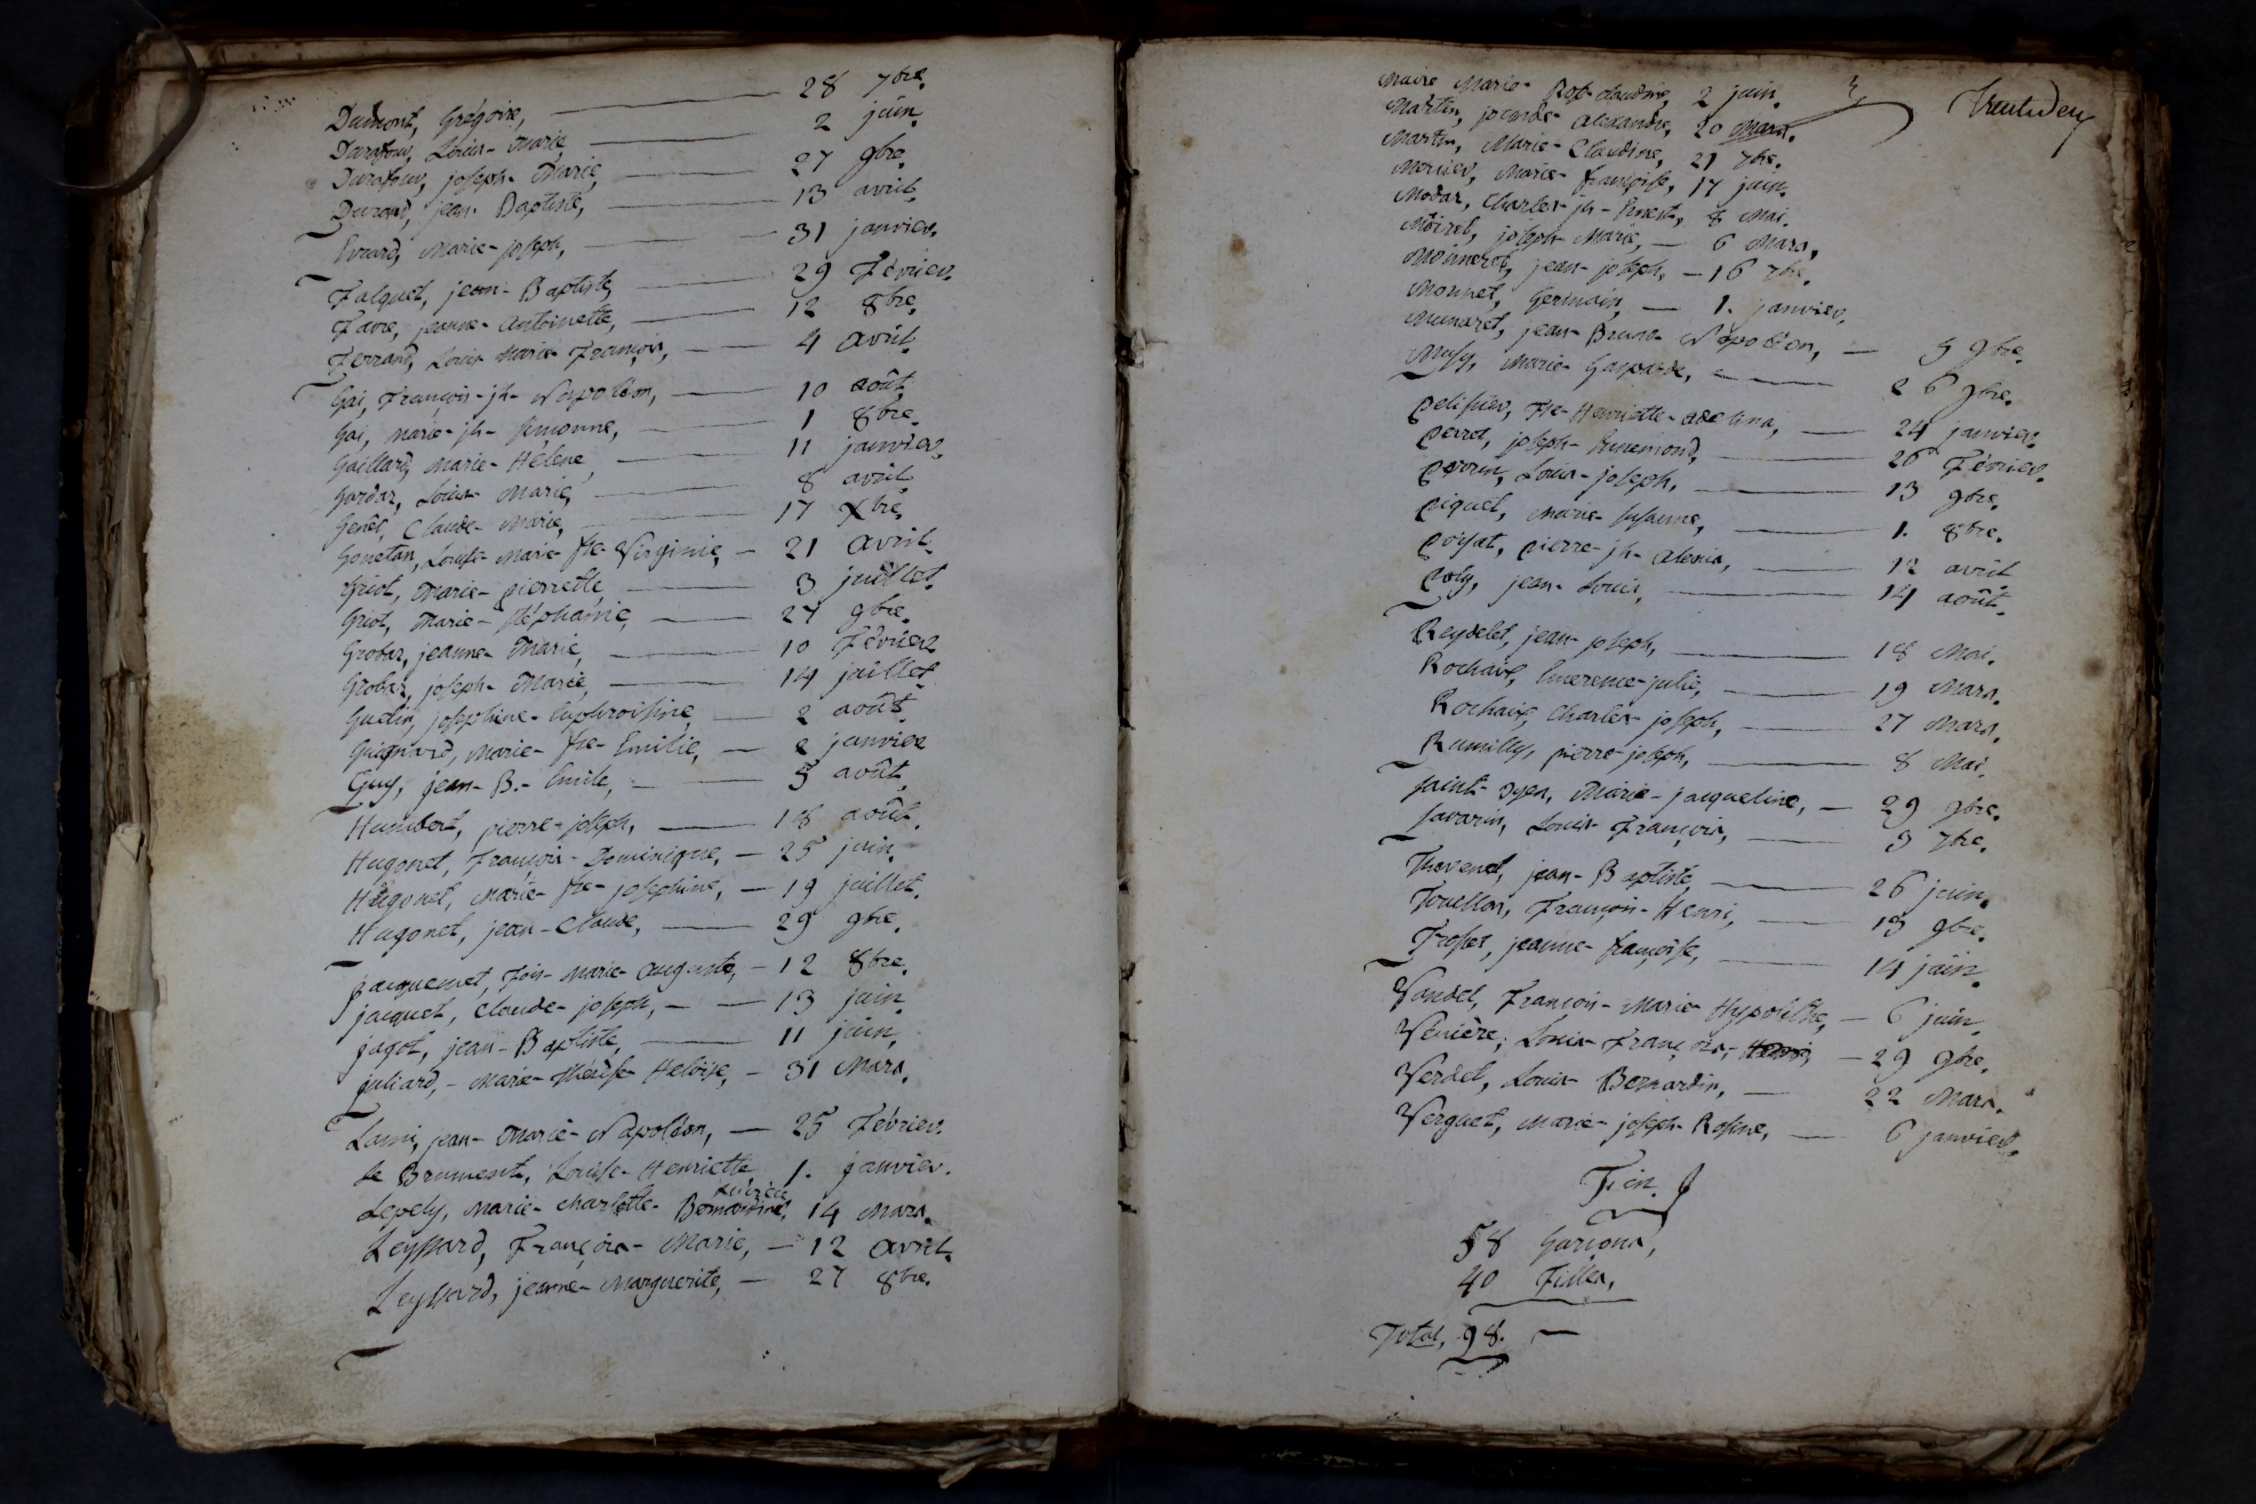 Dumont, Grégoire, 28 7bre.
Durafour, Louis-Marie, 2 juin.
Durafour, joseph-Marie, 27 9bre.
Durand, jean-Baptiste, 13 avril.
Evrard, Marie-joseph, 31 janvier.
Falquet, jean-Baptiste, 29 Février.
Favre, jeanne-antoinette, 12 8bre.
Ferrand, Louis Marie François, 4 avril.
Gai, François-jh-Napoléon, 10 août.
Gai, Marie-jh-Simonne, 1 8bre.
Gaillard, Marie-Hélene, 11 janvier.
Gardaz, Louis-Marie, 8 avril.
Genêt, Claude-Marie, 17 Xbre.
Gonetan, Louise-Marie-fse-Virginie, - 21 avril.
Griot, Marie-pierrette, 3 juillet.
Griot, Marie-Stéphanie, 27 9bre.
Grobaz, jeanne-Marie, 10 Février
Grobaz, joseph-Marie, 14 juillet.
Guelin, josephine-Euphroisine, 2 août.
Guignard, Marie-fse-Emilie, - 2 janvier
Guy, jean-B.-Emile, 5 août,
Humbert, pierre-joseph, 18 août.
Hugonet, François-Dominique, - 25 juin.
Hugonet, Marie-fse-josephine, - 19 juillet.
Hugonet, jean-Claude, 29 9bre.
jacquemet, Fois-Marie-auguste, - 12 8bre.
jacquet, Claude-joseph, - - 13 juin.
jagot, jean-Baptiste, 11 juin.
juliard, - Marie-Thérèse Heloïse, - 31 Mars.
Lami, jean-Marie-Napoléon, - 25 Février.
le Brument, Louise-Henriette 1. janvier.
Lepely, Marie-charlotte-Bernardine, 14 Mars.
Leyssard, François-Marie, - 12 avril.
Leyssard, jeanne-Marguerite, - 27 8bre.
Maire Marie-Rose-claudine, 2 juin.
Martin, alexandre, 20 Mars.
Martin, Marie-Claudine, 21 7bre.
Mercier, Marie-françoise, 17 juin.
Modas, Charles-jh-Ernest, 8 Mai.
Moiret, joseph-Marie, - 6 Mars.
Moinneret, jean-joseph, - 16 7bre.
Monnet, Germain, - 1. janvier.
Munaret, jean-Bruno-Napoléon, - 5 9bre.
Musy, Marie-Gasparde, 26 9bre.
pelissier, Fse-Henriette-adelina, - 24 janvier.
perret, joseph-Ennemond, 26 Février.
perrin, Louis-joseph, 13 9bre.
piquet, Marie-Susanne, 1. 8bre.
poisat, pierre-jh-alexis, 12 avril
poly, jean-Louis, 14 août.
Reydelet, jean-joseph, 18 Mai.
Rochaix, Emerence-julie, 19 Mars.
Rochaix, Charles-joseph, 27 Mars.
Rumilly, pierre-joseph, 8 Mai.
Saint-oyen, Marie-jacqueline, - 29 9bre.
Savarin, Louis-François, 3 7bre.
Thevenet, jean-Baptiste, 26 juin.
Touillon, François-Henri, 13 9bre.
Trosset, jeanne-françoise, 14 juin.
Vandel, François-Marie-Hypolithe, - 6 juin.
Venière, Louis-François-Henri, - 29 9bre.
Verdet, Louis-Bernardin, - 22 Mars.
Verguet, Marie-joseph-Rosine, - 6 janvier.
Fin.
58 Garçons,
40 Filles,
Total, 98.